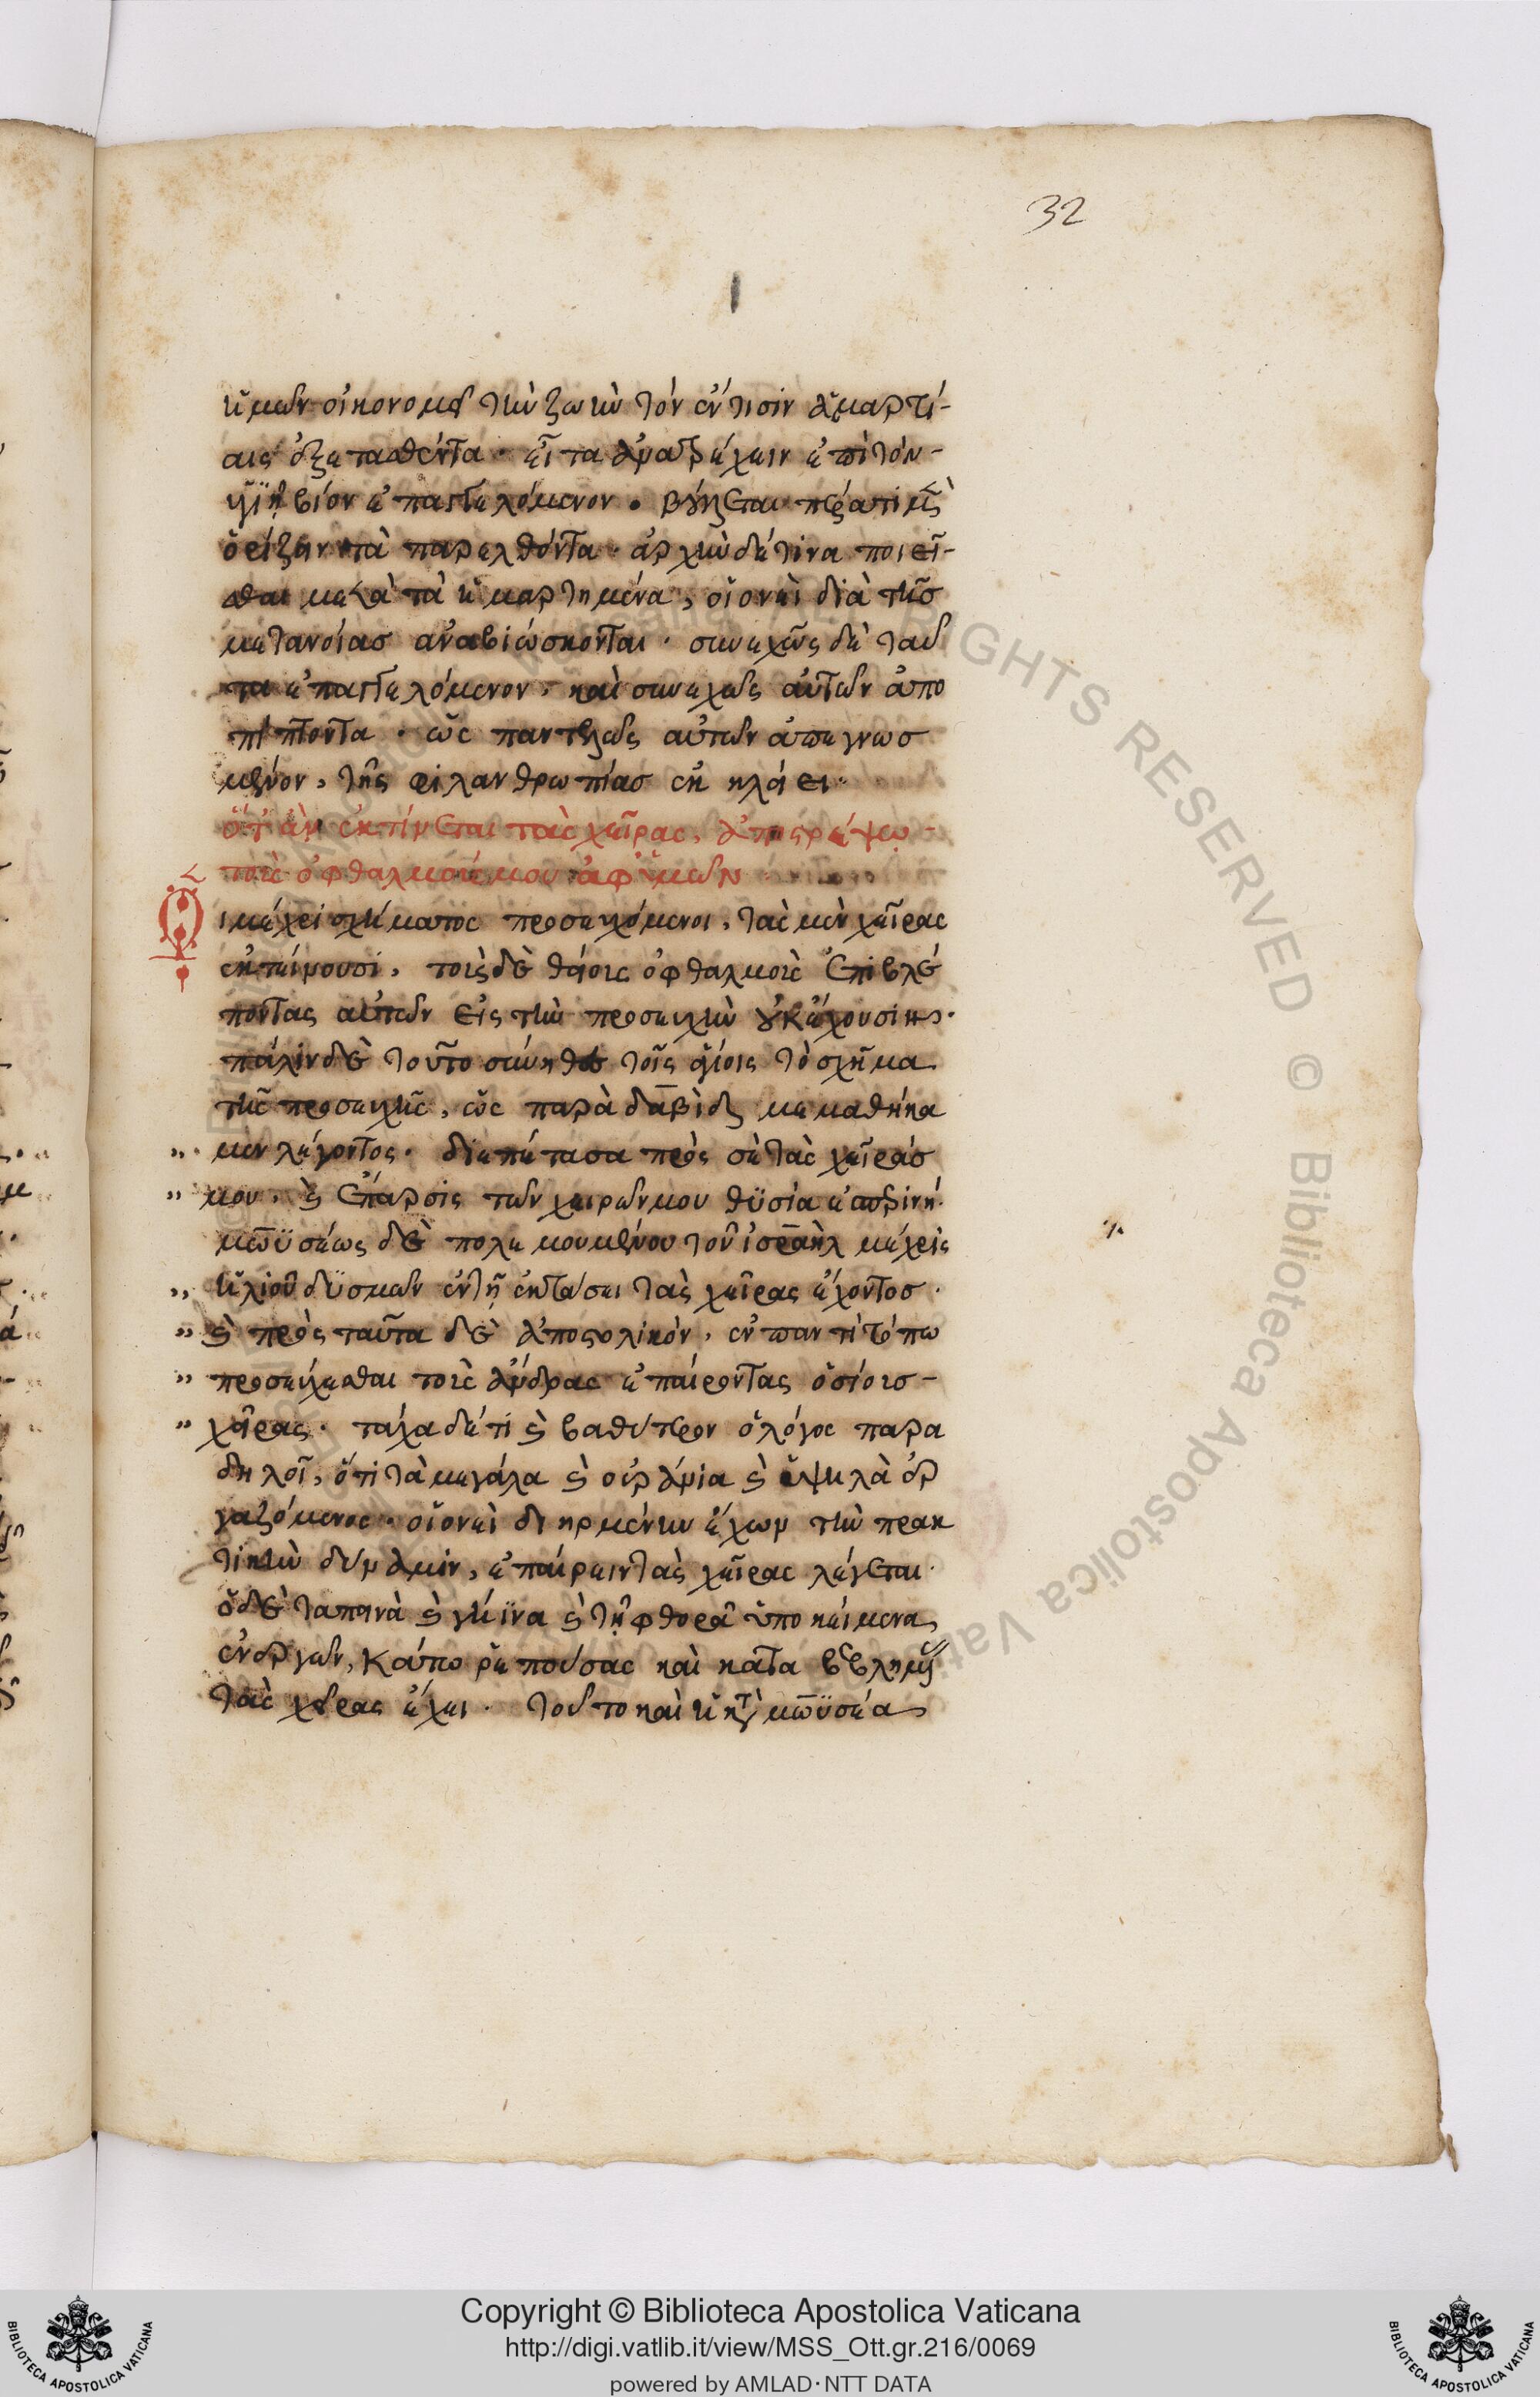 32
ἡμῶν οἰκονομεῖ τὴν ζωὴν τὸν ἔν τισιν ἁμαρτί-
αις ἐξετασθέντα · εἶτα ἀνατρέχειν ἐπὶ τὸν-
βίον ἐπαγγελόμενον · βούλεται
ὁρίζειν τὰ παρελθόντα · ἀρχὴν δέ τινα ποιεῖ-
σθαι μετὰ τὰ ἡμαρτημένα, οἱονεὶ διὰ τῆσ
μετανοίασ ἀναβιώσκονται · συνεχῶς δὲ ταῦ
τα ἐπαγγελόμενον, καὶ συνεχῶς αὐτῶν ἀπο
πίπτοντα · ὡς παντελῶς αὐτῶν ἀπεγνωσ
μένον, τῆς φιλανθρωπίασ ἐκκλείει ·
ὅτ' ἂν ἐκτείνεται τὰς χεῖρας, ἀποστρέψω
τοὺς ὀφθαλμούς μου ἀφ' ὑμῶν
Οἱ μέχρι σχήματος προσευχόμενοι, τὰς μὲν χεῖρας
ἐκτείνουσι, τοὺς δὲ θείους ὀφθαλμοὺς ἐπιβλέ
ποντας αὐτῶν εἰς τὴν προσευχὴν οὐκ ἔχουσιν ·
πάλιν δὲ τοῦτο σύνηθες τοῖς ἁγίοις τὸ σχῆμα
τῆς προσευχῆς, ὡς παρὰ δαβὶδ μεμαθήκα
μεν λέγοντος · διεπέτασα πρὸς σὲ τὰς χεῖράσ
μου, καὶ ἔπαρσις τῶν χειρῶν μου θυσία ἑσπερινή ·
μωϋσέως δὲ πολεμουμένου τοῦ ἰσραὴλ μέχρις
ἡλίου δυσμῶν ἐν τῇ ἐκτάσει τὰς χεῖρας ἔχοντοσ ·
καὶ πρὸς ταῦτα δὲ ἀποστολικὸν, ἐν παντὶ τόπω
προσεύχεσθαι τοὺς ἄνδρας ἐπαίροντας ὁσίουσ-
χεῖρας · τάχα δέ τι καὶ βαθύτερον ὁ λόγος παρα
δηλοῖ, ὅτι τὰ μεγάλα καὶ οὐράνια καὶ ὑψηλὰ ἐρ
γαζόμενος · οἱονεὶ διηρμένην ἔχων τὴν πρακ
τικὴν δύναμιν, ἐπαίρειν τὰς χεῖρας λέγεται ·
ὁ δὲ ταπεινὰ καὶ γήϊνα καὶ τῇ φθορᾷ ὑποκείμενα
ἐνεργῶν, κάτω ῥεπούσας καὶ καταβεβλημένας
τὰς χεῖρας ἔχει · τοῦτο καὶ μωϋσέα
Copyright © Biblioteca Apostolica Vaticana
http://digi.vatlib.it/view/MSS_Ott.gr.216/0069
powered by AMLAD·NTT DATA